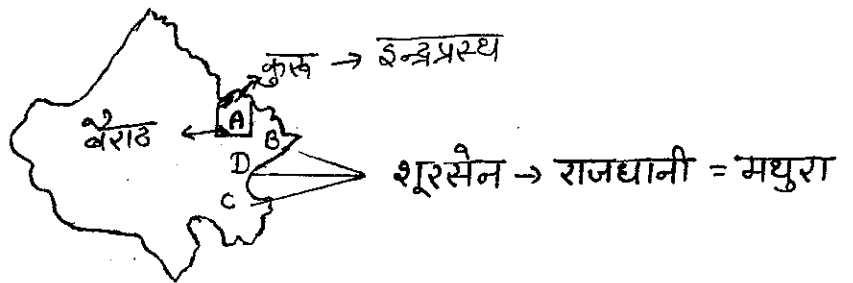 कुरू → इन्द्रप्रस्थ
बैराठ
A
B
D
C
शूरसेन → राजधानी = मथुरा